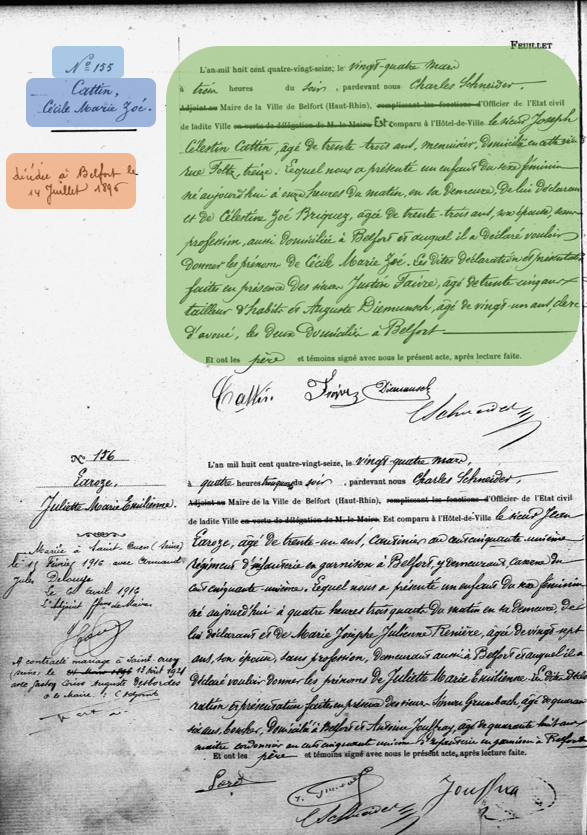 FEUILLET
Nº 155
Cattin,
Cécile Marie Zoé.
décédée à Belfort le
14 Juillet 1896
L'an mil huit cent quatre-vingt-seize, le vingt-quatre mars
à trois heures du soir, pardevant nous Charles Schneider,
Adjoint au Maire de la Ville de Belfort (Haut-Rhin), remplissant les fonctions d'Officier de l'Etat civil
de ladite Ville en vertu de délégation de M. le Maire Est comparu à l'Hôtel-de-Ville le sieur Joseph
Célestin Cattin, âgé de trente trois ans, menuisier, domicilié en cette ville
rue treize. Lequel nous a présenté un enfant du sexe féminin
né aujourd'hui à onze heures du matin, en sa demeure, de lui déclarant
et de Célestine Zoé Briquez, âgée de trente-trois ans, son épouse, sans
profession, aussi domiciliée à Belfort et auquel il a déclaré vouloir
donner les prénoms de Cécile Marie Zoé. Les dites déclaration et présentation
faites en présence des sieurs Justin Faivre, âgé de trente cinq ans
tailleur d'habits et Auguste Diemunsch, âgé de vingt-un ans, clerc
d'avoué, les deux domiciliés à Belfort
Et ont les père et témoins signé avec nous le présent acte, après lecture faite.
Cattin Faivre Diemunsch
CSchneider
Nº 156
Earoze,
Juliette Marie Emilienne.
Mariée à Saint-Ouen (Seine)
le 15 Février 1916 avec
Jules Delouye
Le avril 1916
L'Adjoint ffons de Maire.
A contracté mariage à Saint-Ouen
(Seine) le 13 Août 1921
avec Auguste Desbordes
L'an mil huit cent quatre-vingt-seize, le vingt-quatre mars,
à quatre heures du soir, pardevant nous Charles Schneider,
Adjoint au Maire de la Ville de Belfort (Haut-Rhin), remplissant les fonctions d'Officier de l'Etat civil
de ladite Ville en vertu de délégation de M. le Maire. Est comparu à l'Hôtel-de-Ville le sieur Jean
Earoze, âgé de trente-un ans, cuisinier au cent cinquante unième
Régiment d'infanterie en garnison à Belfort, y demeurant, caserne du
cent cinquante-unième. Lequel nous a présenté un enfant du sexe féminin
né aujourd'hui à quatre heures trois quarts du matin en sa demeure, de
lui déclarant et de Marie Josèphe Julienne Renière, âgée de vingt-sept
ans, son épouse, sans profession, demeurant aussi à Belfort et auquel il a
déclaré vouloir donner les prénoms de Juliette Marie Emilienne. Les dites décla
ration et présentation faites en présence des sieurs Grumbach, âgé de quarante
six ans, domicilié à Belfort et Antoine Jouffray, âgé de quarante huit ans
maître cordonnier au cent cinquante unième d'infanterie en garnison à Belfort
Et ont les père et témoins signé avec nous le présent acte, après lecture faite.
CSchneider Jouffray